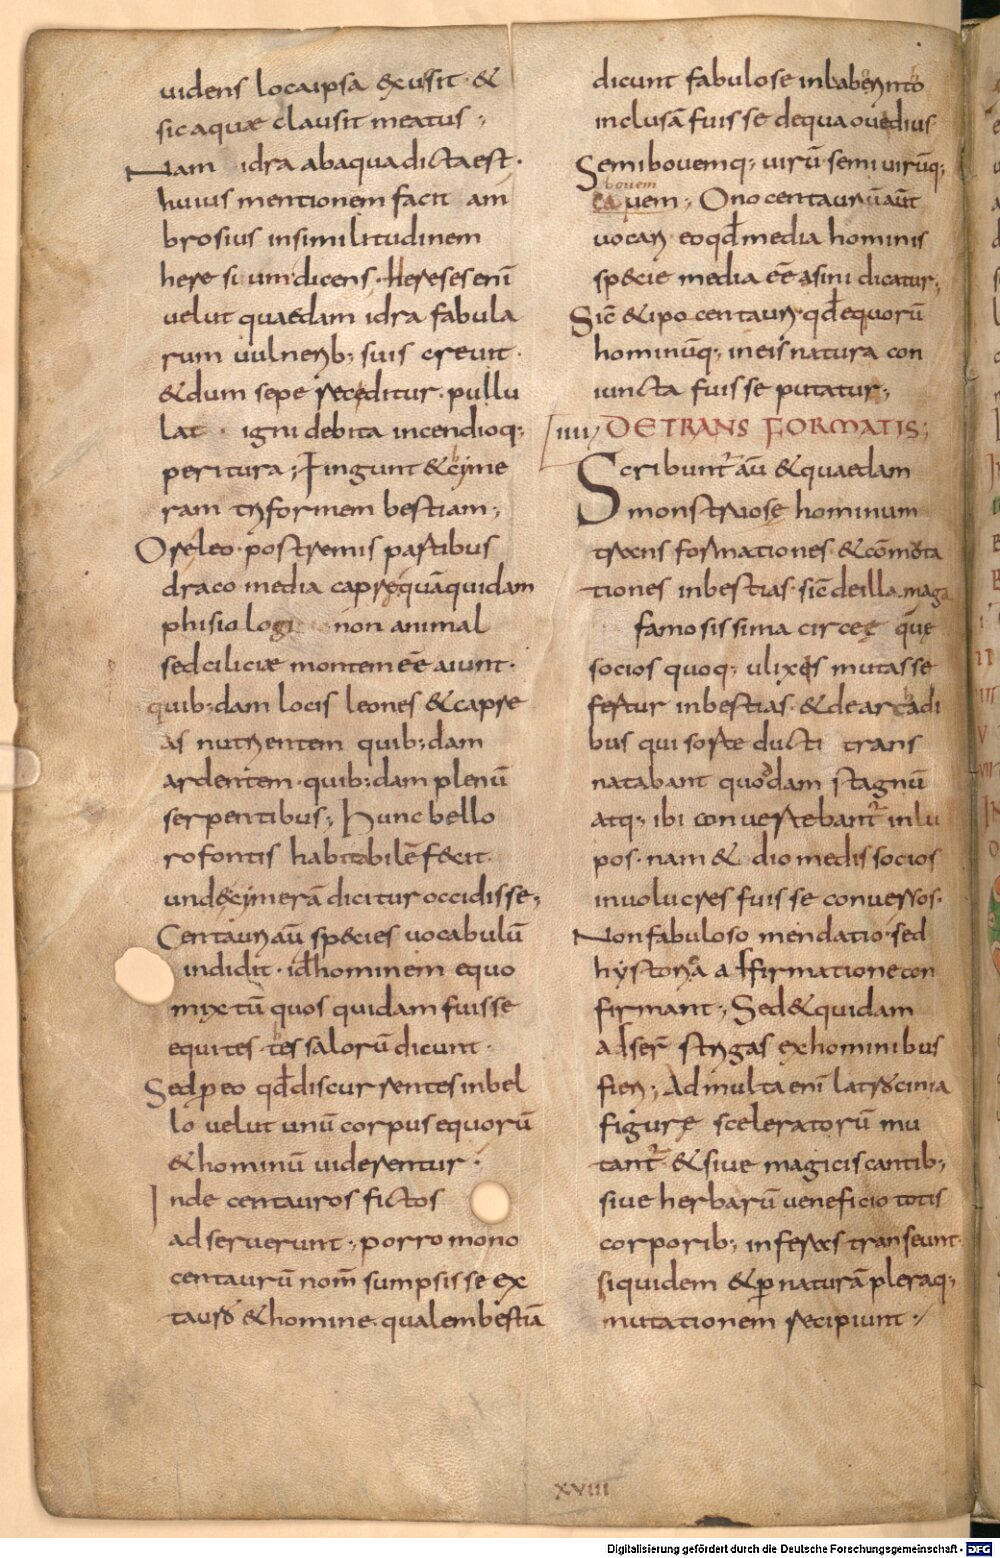 uidens locaipsa &cussit · &
sic aquae clausit meatus ;
Nam idra abaqua dicta est ·
huius mentionem facit am
brosius insimilitudinem
heresium dicens · Hereses enī
uelut quaedam idra fabula
rum uulnerib; suis creuit ·
& dum sepe receditur · pullu
lat · igni debita incendioq;
peritura ; Fingunt & cyme
ram triformem bestiam ;
Ore leo · postremis partibus
draco media capre quā quidam
phisiologi non animal
sed ciliciae montem eē aiunt ·
quib;dam locis leones & capre
as nutrientem quib;dam
ardentem · quib;dam plenū
serpentibus ; Hunc bello
rofontis habitabilē fecit
unde cymerā dicitur occidisse ;
Centauri aū species uocabulū
indidit · id hominem equo
mixtū quos quidam fuisse
equites tessalorū dicunt ·
Sed p eo qd discurrentes inbel
lo uelut unū corpus equorū
& hominū uiderentur ·
Inde centauros fictos
adseruerunt ; porro mono
centaurū nom̄ sumpsisse ex
tauro & homine · qualem bestiā
dicunt fabulose inlaberinto
inclusā fuisse de qua ouedius
Semibouemq; uirū · semiuirūq;
bouem
uem ; Onocentaurū aūt
uocari eo qd media hominis
specie media eē asini dicatur ;
Sic̄ & ipocentauri · qd equorū
hominūq; in eis natura con
iuncta fuisse putatur ;
iiii DE TRANSFORMATIS ;
Scribuntr̄ aū & quaedam
monstruose hominum
transformationes & cōmota
tiones inbestias · sic̄ de illa maga
famosissima circe que
socios quoq; ulixes mutasse
fertur inbestias · & de arcadi
bus qui sorte ducti trans
natabant quodam stagnū
atq; ibi conuertebantr̄ inlu
pos · nam & diomedis socios
inuolucres fuisse conuersos ·
Non fabuloso mendatio · sed
hystoria affirmatione con
firmant ; Sed & quidam
adser̄ strigas ex hominibus
fieri ; Ad multa enī latrocinia
figure sceleratorū mu
tantr̄ · & siue magicis cantib;
siue herbarū ueneficio totis
corporib; inferas transeunt
siquidem & p naturā pleraq;
mutationem recipiunt ·
xviii
Digitalisierung gefördert durch die Deutsche Forschungsgemeinschaft - DFG